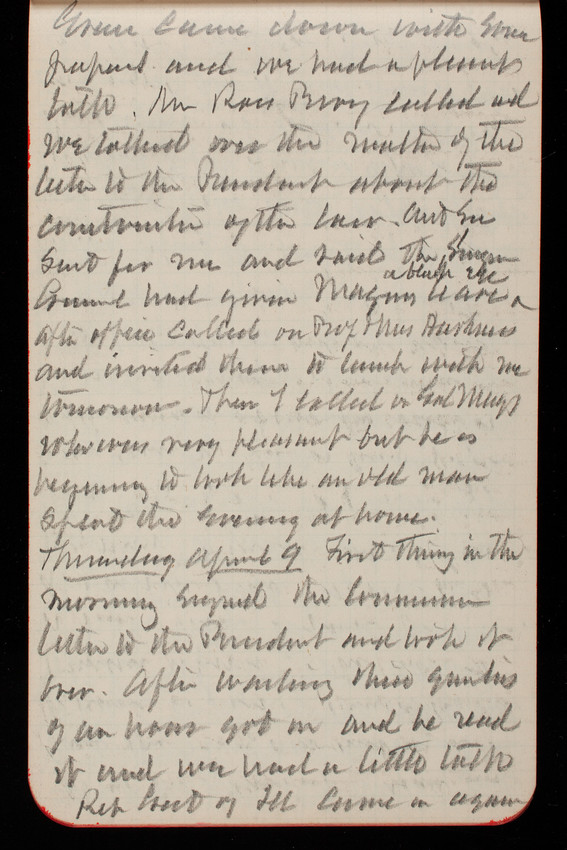 Green came down with some
papers and we had a pleasant
talk. Mr Ross Perry called and
we talked over the matter of the
letter to the President about the
construction of the law. Asst Sec
sent for me and said the Surgeon
General had given
a black eye
after office called on Prof & Mrs Harkness
and invited them to lunch with me
tomorrow. Then I called on Genl Meigs
who was very pleasant but he is
beginning to look like an old man
Spent the evening at home.
Thursday April 9 First thing in the
morning signed the Commission
letter to the President and took it
over. After waiting three quarters
of an hour got in and he read
it and we had a little talk
Rep of Ill came in again